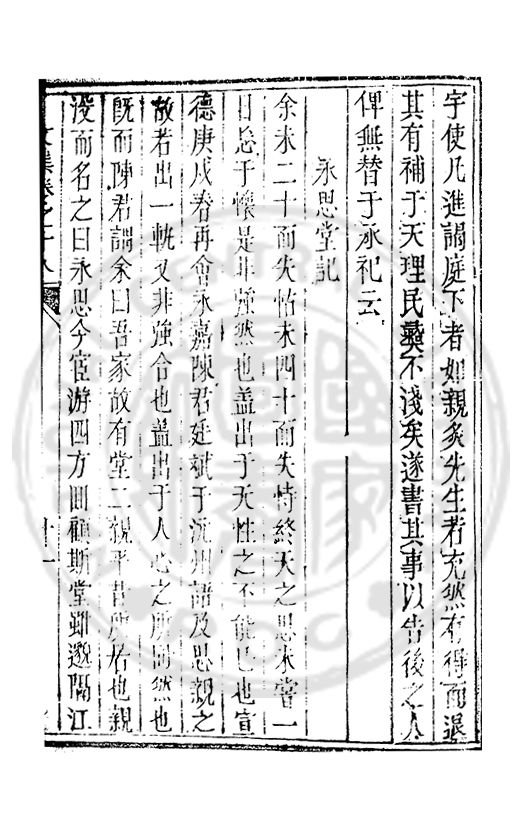 宇使凡進謁庭下者如親炙先生者充然有得而退
其有補于天理民彝不淺矣遂書其事以告後之人
俾無替于永祀云
永思堂記
余未二十而失怙未四十而失恃終天之思未嘗一
日忘于懷是非強然也蓋出于天性之不能已也宣
德庚戌春再會永嘉陳君廷斌于沅州語及思親之
故若出一軌又非強合也蓋出于人心之所同然也
既而陳君謂余曰吾家故有堂二親平昔所居也親
沒而名之曰永思今宦游四方回顧斯堂雖邈隔江
文集卷之十八
十一